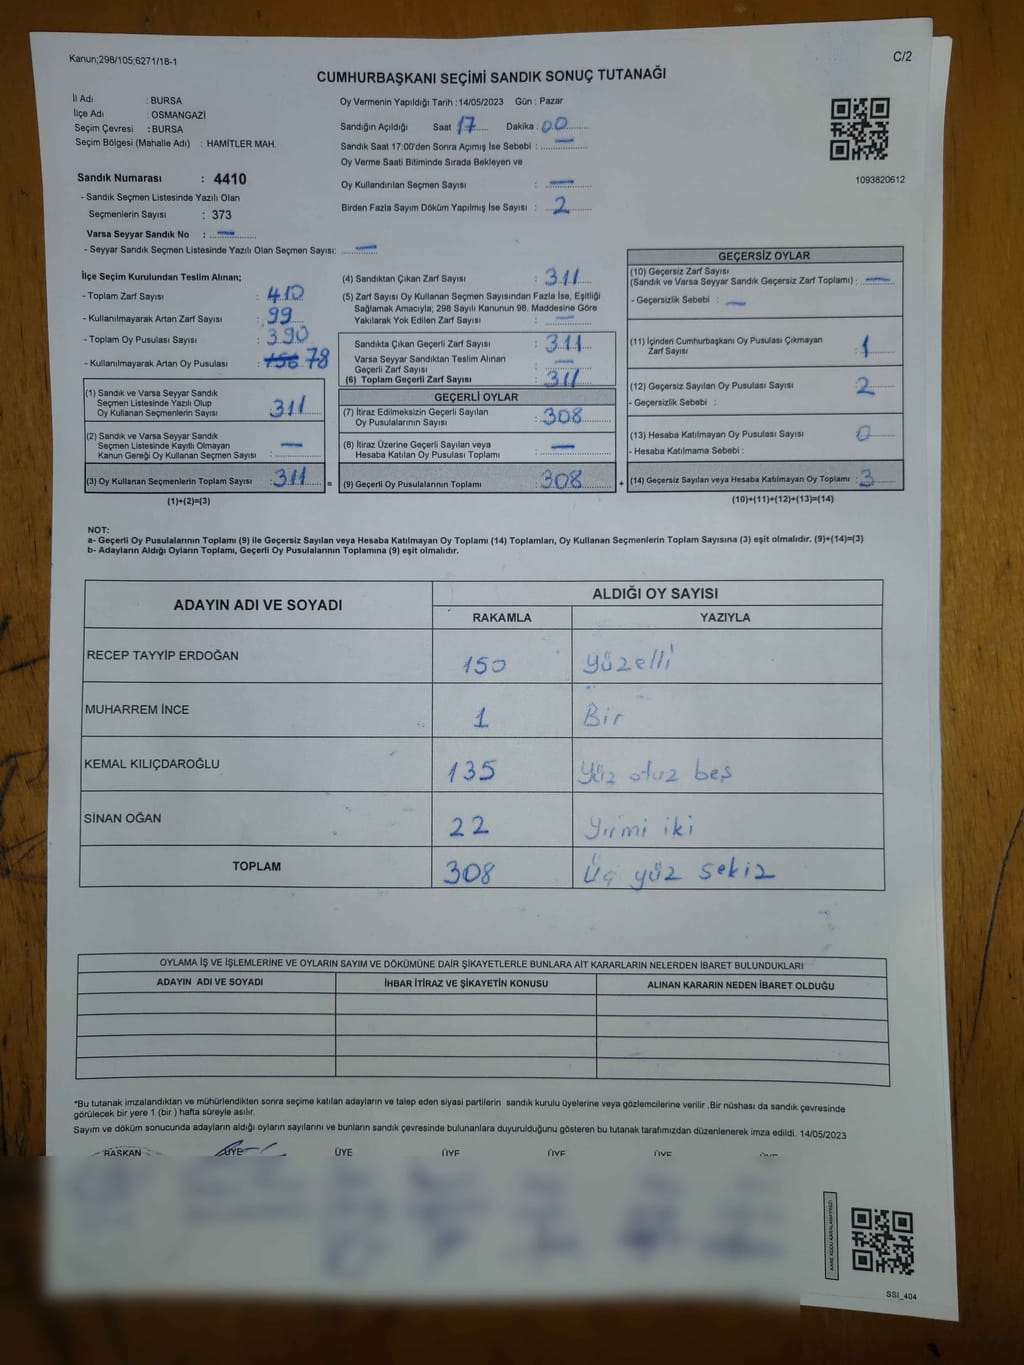 Kanun;298/105,6271/18-1
C/2
CUMHURBAŞKANI SEÇİMİ SANDIK SONUÇ TUTANAĞI
İl Adı : BURSA
İlçe Adı : OSMANGAZİ
Seçim Çevresi : BURSA
Seçim Bölgesi (Mahalle Adı) : HAMİTLER MAH.
Sandık Numarası : 4410
- Sandık Seçmen Listesinde Yazılı Olan
Seçmenlerin Sayısı : 373
Varsa Seyyar Sandık No : —
- Seyyar Sandık Seçmen Listesinde Yazılı Olan Seçmen Sayısı: —
Oy Vermenin Yapıldığı Tarih : 14/05/2023 Gün : Pazar
Sandığın Açıldığı Saat 17 Dakika : 00
Sandık Saat 17:00'den Sonra Açımış İse Sebebi : —
Oy Verme Saati Bitiminde Sırada Bekleyen ve
Oy Kullandırılan Seçmen Sayısı : —
Birden Fazla Sayım Döküm Yapılmış İse Sayısı : 2
1093820612
İlçe Seçim Kurulundan Teslim Alınan;
- Toplam Zarf Sayısı : 410
- Kullanılmayarak Artan Zarf Sayısı : 99
- Toplam Oy Pusulası Sayısı : 390
- Kullanılmayarak Artan Oy Pusulası : 156 78
(1) Sandık ve Varsa Seyyar Sandık
Seçmen Listesinde Yazılı Olup
Oy Kullanan Seçmenlerin Sayısı : 311
(2) Sandık ve Varsa Seyyar Sandık
Seçmen Listesinde Kayıtlı Olmayan
Kanun Gereği Oy Kullanan Seçmen Sayısı : —
(3) Oy Kullanan Seçmenlerin Toplam Sayısı : 311 =
(1)+(2)=(3)
(4) Sandıktan Çıkan Zarf Sayısı : 311
(5) Zarf Sayısı Oy Kullanan Seçmen Sayısından Fazla İse, Eşitliği
Sağlamak Amacıyla; 298 Sayılı Kanunun 98. Maddesine Göre
Yakılarak Yok Edilen Zarf Sayısı : —
Sandıkta Çıkan Geçerli Zarf Sayısı : 311
Varsa Seyyar Sandıktan Teslim Alınan
Geçerli Zarf Sayısı : —
(6) Toplam Geçerli Zarf Sayısı : 311
GEÇERLİ OYLAR
(7) İtiraz Edilmeksizin Geçerli Sayılan
Oy Pusulalarının Sayısı : 308
(8) İtiraz Üzerine Geçerli Sayılan veya
Hesaba Katılan Oy Pusulası Toplamı : —
(9) Geçerli Oy Pusulalarının Toplamı : 308 +
GEÇERSİZ OYLAR
(10) Geçersiz Zarf Sayısı
(Sandık ve Varsa Seyyar Sandık Geçersiz Zarf Toplamı) : —
- Geçersizlik Sebebi : —
(11) İçinden Cumhurbaşkanı Oy Pusulası Çıkmayan
Zarf Sayısı : 1
(12) Geçersiz Sayılan Oy Pusulası Sayısı : 2
- Geçersizlik Sebebi :
(13) Hesaba Katılmayan Oy Pusulası Sayısı : 0
- Hesaba Katılmama Sebebi :
(14) Geçersiz Sayılan veya Hesaba Katılmayan Oy Toplamı : 3
(10)+(11)+(12)+(13)=(14)
NOT:
a- Geçerli Oy Pusulalarının Toplamı (9) ile Geçersiz Sayılan veya Hesaba Katılmayan Oy Toplamı (14) Toplamları, Oy Kullanan Seçmenlerin Toplam Sayısına (3) eşit olmalıdır. (9)+(14)=(3)
b- Adayların Aldığı Oyların Toplamı, Geçerli Oy Pusulalarının Toplamına (9) eşit olmalıdır.
ADAYIN ADI VE SOYADI ALDIĞI OY SAYISI
RAKAMLA YAZIYLA
RECEP TAYYİP ERDOĞAN 150 Yüzelli
MUHARREM İNCE 1 Bir
KEMAL KILIÇDAROĞLU 135 Yüz otuz beş
SİNAN OĞAN 22 Yirmi iki
TOPLAM 308 Üç yüz sekiz
OYLAMA İŞ VE İŞLEMLERİNE VE OYLARIN SAYIM VE DÖKÜMÜNE DAİR ŞİKAYETLERLE BUNLARA AİT KARARLARIN NELERDEN İBARET BULUNDUKLARI
ADAYIN ADI VE SOYADI İHBAR İTİRAZ VE ŞİKAYETİN KONUSU ALINAN KARARIN NEDEN İBARET OLDUĞU
*Bu tutanak imzalandıktan ve mühürlendikten sonra seçime katılan adayların ve talep eden siyasi partilerin sandık kurulu üyelerine veya gözlemcilerine verilir .Bir nüshası da sandık çevresinde
görülecek bir yere 1 (bir ) hafta süreyle asılır.
Sayım ve döküm sonucunda adayların aldığı oyların sayılarını ve bunların sandık çevresinde bulunanlara duyurulduğunu gösteren bu tutanak tarafımızdan düzenlenerek imza edildi. 14/05/2023
BAŞKAN ÜYE ÜYE ÜYE ÜYE ÜYE
SSI_404